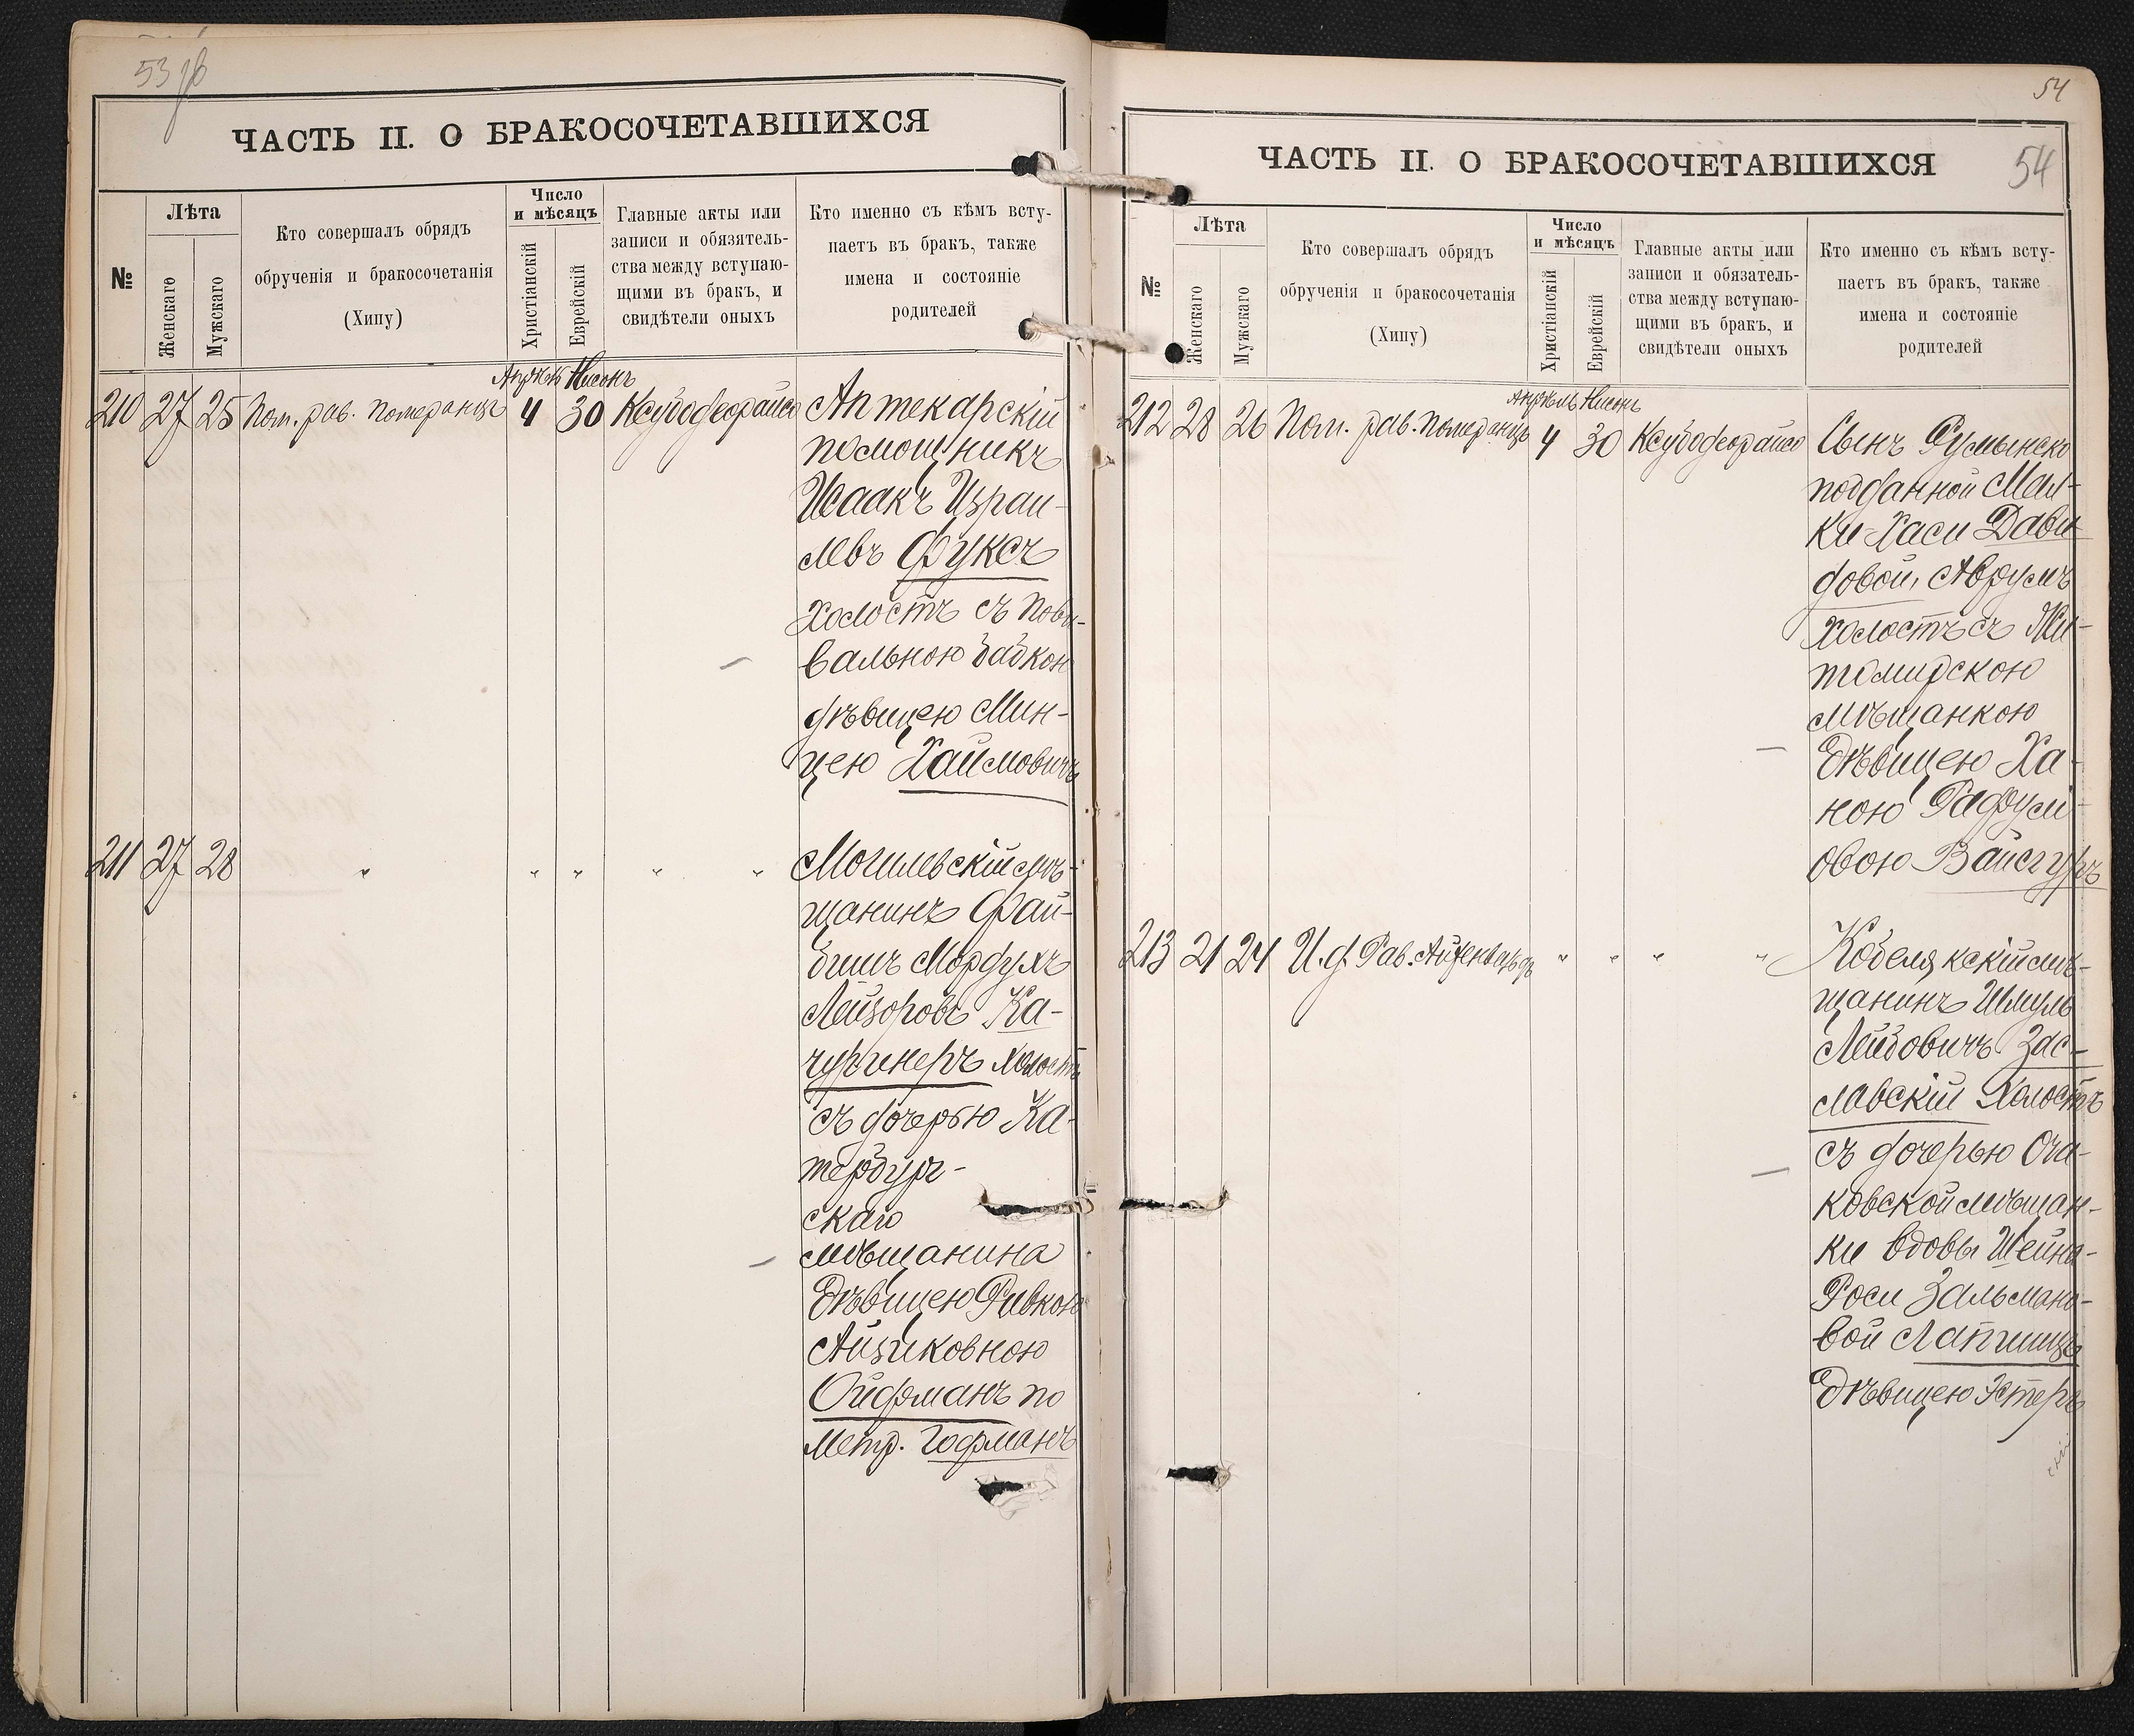 53 об
ЧАСТЬ II. О БРАКОСОЧЕТАВШИХСЯ
№
Лѣта
Женскаго
Мужскаго
Кто совершалъ обрядъ
обрученія и бракосочетанія
(Хипу)
Число
и мѣсяцъ
Христіанскій
Еврейскій
Главные акты или
записи и обязятель-
ства между вступаю-
щими въ бракъ, и
свидѣтели оныхъ
Кто именно съ кѣмъ всту-
паетъ въ бракъ, также
имена и состояніе
родителей
Апрѣль Нисонъ
210 27 25 Пом. рав. Померанцъ 4 30 Ксубодеорайсо
Аптекарскій
помощникъ
Исаакъ Израи-
левъ Фуксъ
холостъ съ пови-
вальною бабкою
дѣвицею Мин-
цею Хаимовичъ
211 27 28 " " " " "
Могилевскій мѣ-
щанинъ Фай-
бишъ Мордухъ
Лейзоровъ Ка-
чургинеръ холостъ
съ дочерью Ка-
тербург-
скаго
мѣщанина
Дѣвицею Ривкою
Айзиковною
Ойфманъ по
метр. Гофманъ
54
ЧАСТЬ II. О БРАКОСОЧЕТАВШИХСЯ
54
№
Лѣта
Женскаго
Мужскаго
Кто совершалъ обрядъ
обрученія и бракосочетанія
(Хипу)
Число
и мѣсяцъ
Христіанскій
Еврейскій
Главные акты или
записи и обязатель-
ства между вступаю-
щими въ бракъ, и
свидѣтели оныхъ
Кто именно съ кѣмъ всту-
паетъ въ бракъ, также
имена и состояніе
родителей
Апрѣль Нисонъ
212 28 26 Пом. рав. Померанцъ 4 30 Ксубодеорайсо
Сынъ Румынско
подданной Мал-
ки-Хаси Дави
довой, Аврумъ
холостъ съ Жи-
томирскою
мѣщанкою
Дѣвицею Ха-
ною Рафули-
овою Вайсгуръ
213 21 24 И. д. Рав. Айзенвардъ " " " "
Кобелякскій мѣ-
щанинъ Шмуль
Лейбовичъ Зас-
лавскій холостъ
съ дочерью Оча-
ковской мѣщан-
ки вдовы Шейна-
Роси Зальмано-
вой Лапшицъ
Дѣвицею Эстеръ